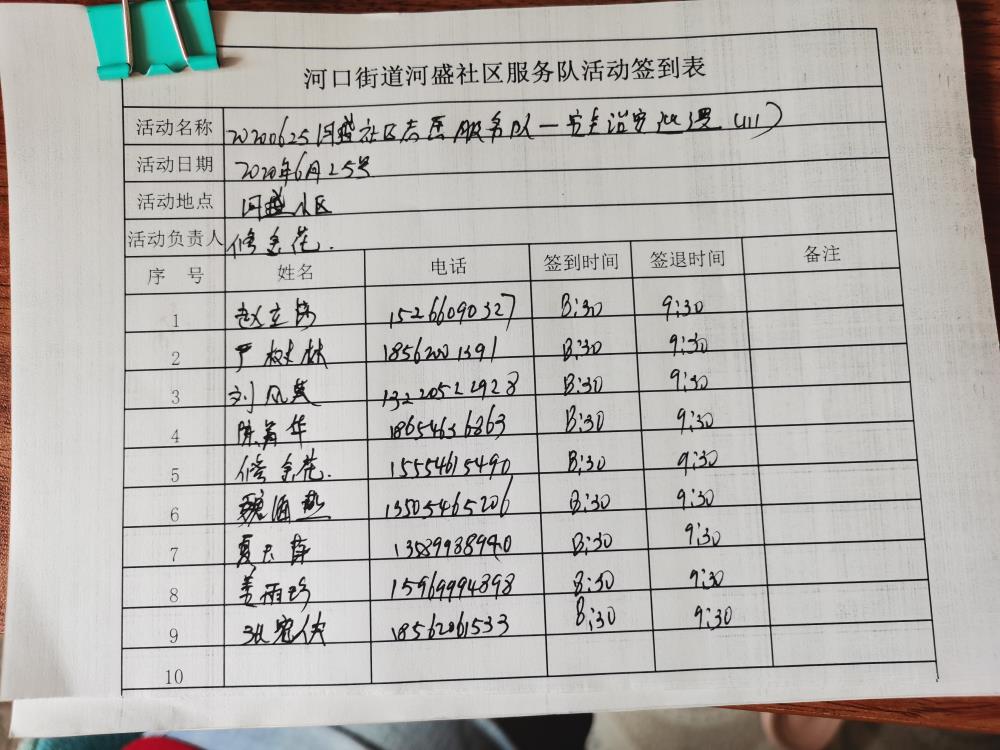 河口街道河盛社区服务队活动签到表
活动名称 20200625河盛社区志愿服务队—安全治安巡逻(111)
活动日期 2020年6月25号
活动地点 河盛小区
活动负责人 修金花.
序 号 姓名 电话 签到时间 签退时间 备注
1 赵立 15266090327 8:30 9:30
2 严树林 18562001391 8:30 9:30
3 刘凤英 13220522928 8:30 9:30
4 陈 华 18654636863 8:30 9:30
5 修金花. 15554615490 8:30 9:30
6 魏 13505465206 8:30 9:30
7 夏 13589988940 8:30 9:30
8 姜丽珍 15969994898 8:30 9:30
9 张 18562061533 8:30 9:30
10